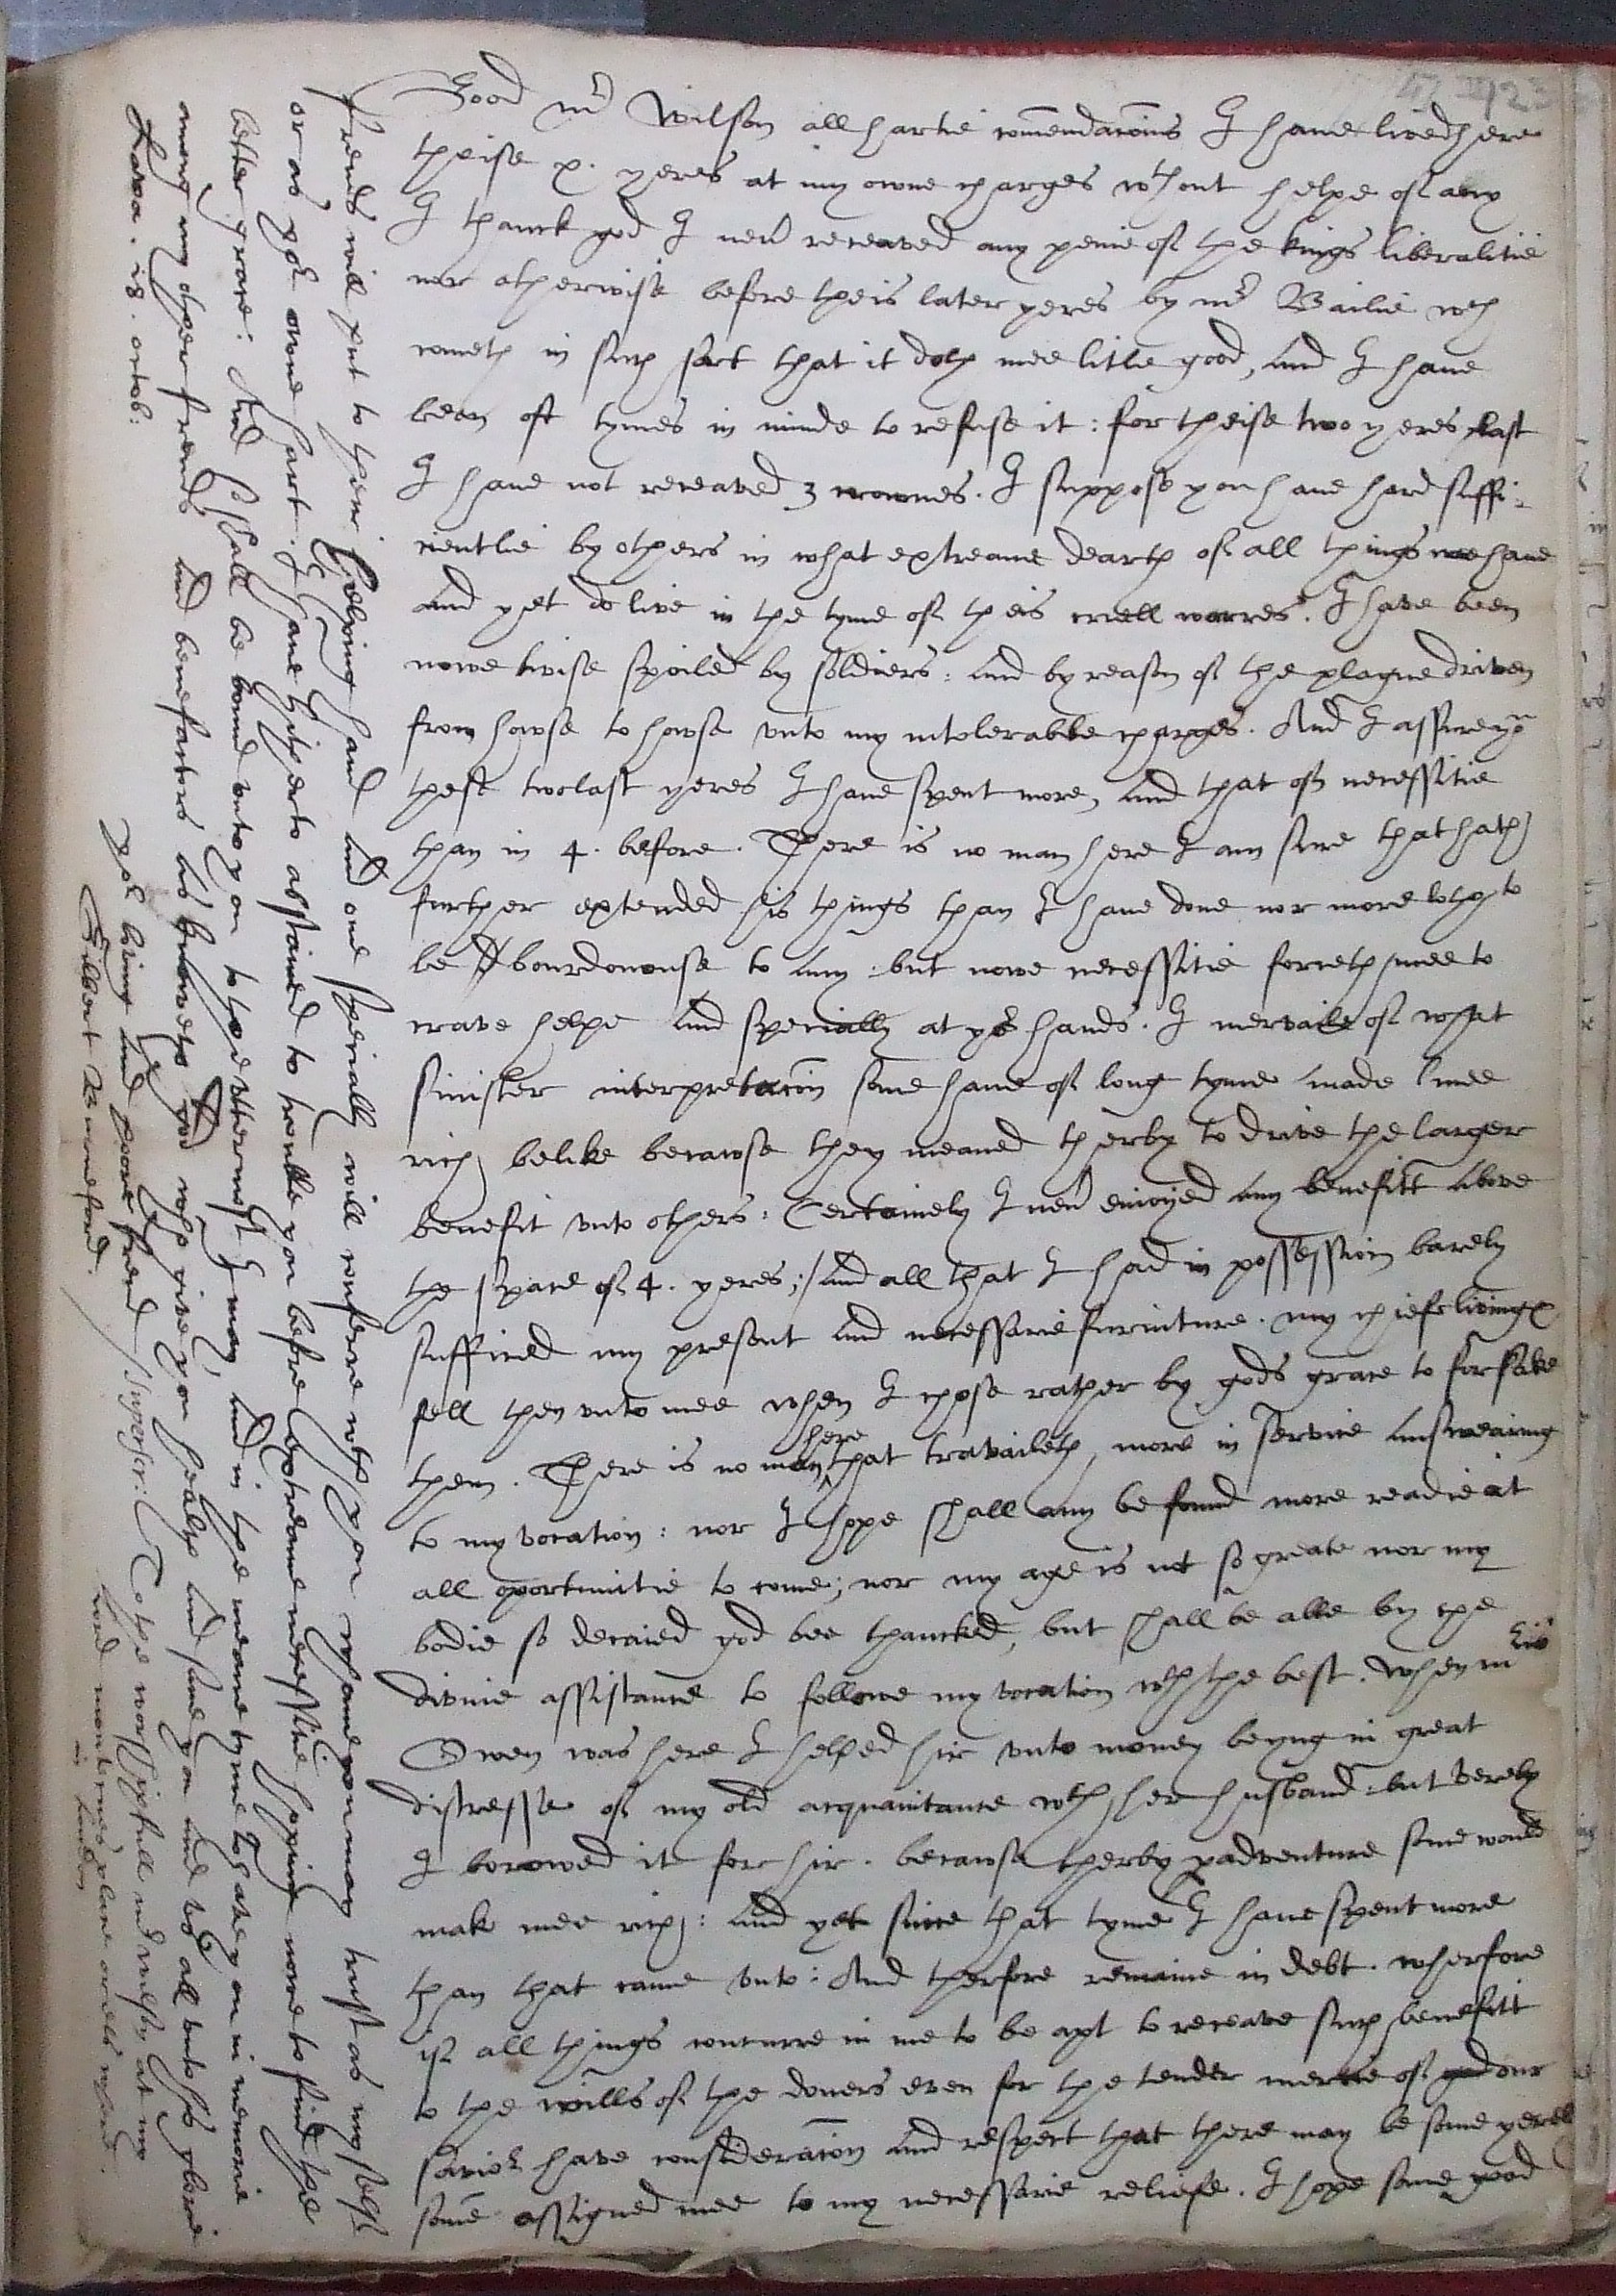 Good mr Wilson all hartie comendacons I have lived here
theise x. yeres at my owne charges wthout helpe of any
I thanck god I never receaved any penie of the kings liberalitie
nor otherwise before theis later yeres by mr Bailie wch
cometh in such sort that it doth mee litle good, and I have
been oft tymes in minde to refuse it: for theise two yeres last
I have not receaved 3 crownes. I suppose you have hard suffi-
cientlie by others in what extreame dearth of all things wee have
and yet do live in the tyme of theis cruell warres. I have been
nowe twise spoiled by soldiers: and by reason of the plague driven
from howse to howse unto my intolerable charges. And I assure you
these two last yeres I have spent more, and that of necessitie
than in 4. before. There is no man here I am sure that hath
further extended his things than I have done nor more loth to
be bourdonouse to any: but nowe necessitie forceth mee to
crave helpe and specially at yor hands. I mervaile of what
sinister interpretacon some have of long tyme made mee
rich belike becawse they meaned therby to drive the larger
benefit unto others: Certainely I never enioyed any benefitt above
the space of 4. yeres; and all that I had in possession barely
sufficed my present and necessarie furniture. my chiefe livings
fell then unto mee when I chose rather by gods grace to forsake
them. There is no man here that travaileth, more in service answearing
to my vocation: nor I hope shall any be found more readie at
all oportunitie to come; nor my age is not so greate nor my
bodie so decaied god bee thancked, but shall be able by the
divine assistance to followe my vocation wth the best. When mris
Owen was here I helped hir unto money beyng in great
distresse of my old acquaintance wth her husband: but verely
I borowed it for hir. becawse therby padventure some would
make mee rich: and yet since that tyme I have spent more
than that came unto: And therfore remaine in debt. wherfore
if all things concurre in me to be apt to receave such benefitt
to the wills of the doners even for the tender mercie of god our
savior have consideracon and respect that there may be some yerely
some assigned mee to my necessarie reliefe. I hope some good
frends will put to their helping hand and one specially will confere wth you whome you may trust as my selfe
or as yor owne hart. I have hitherto abstained to trouble you before extreame necessitie hoping nowe to find the
better grace: And I shall be bound unto you to the uttermost I may and in the meane tyme to have you in memorie
among my other frends and benefactors as knoweth god who give you health and save you and us all unto his glorie
Lava. 18. octob:
yor loving and poore frend
Gilbert Burneford.
Superscr: To the worshipfull mr wilson at my
Lord montacues place over
in London